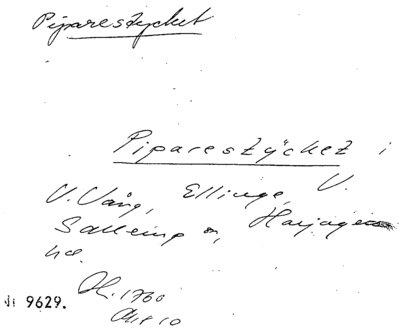 Piparestycket
Piparestycket i
V. Vång, Ellinge, V.
Sallerup sn, Harjagers
hd.
Ak. 1760
Akt 10
9629.